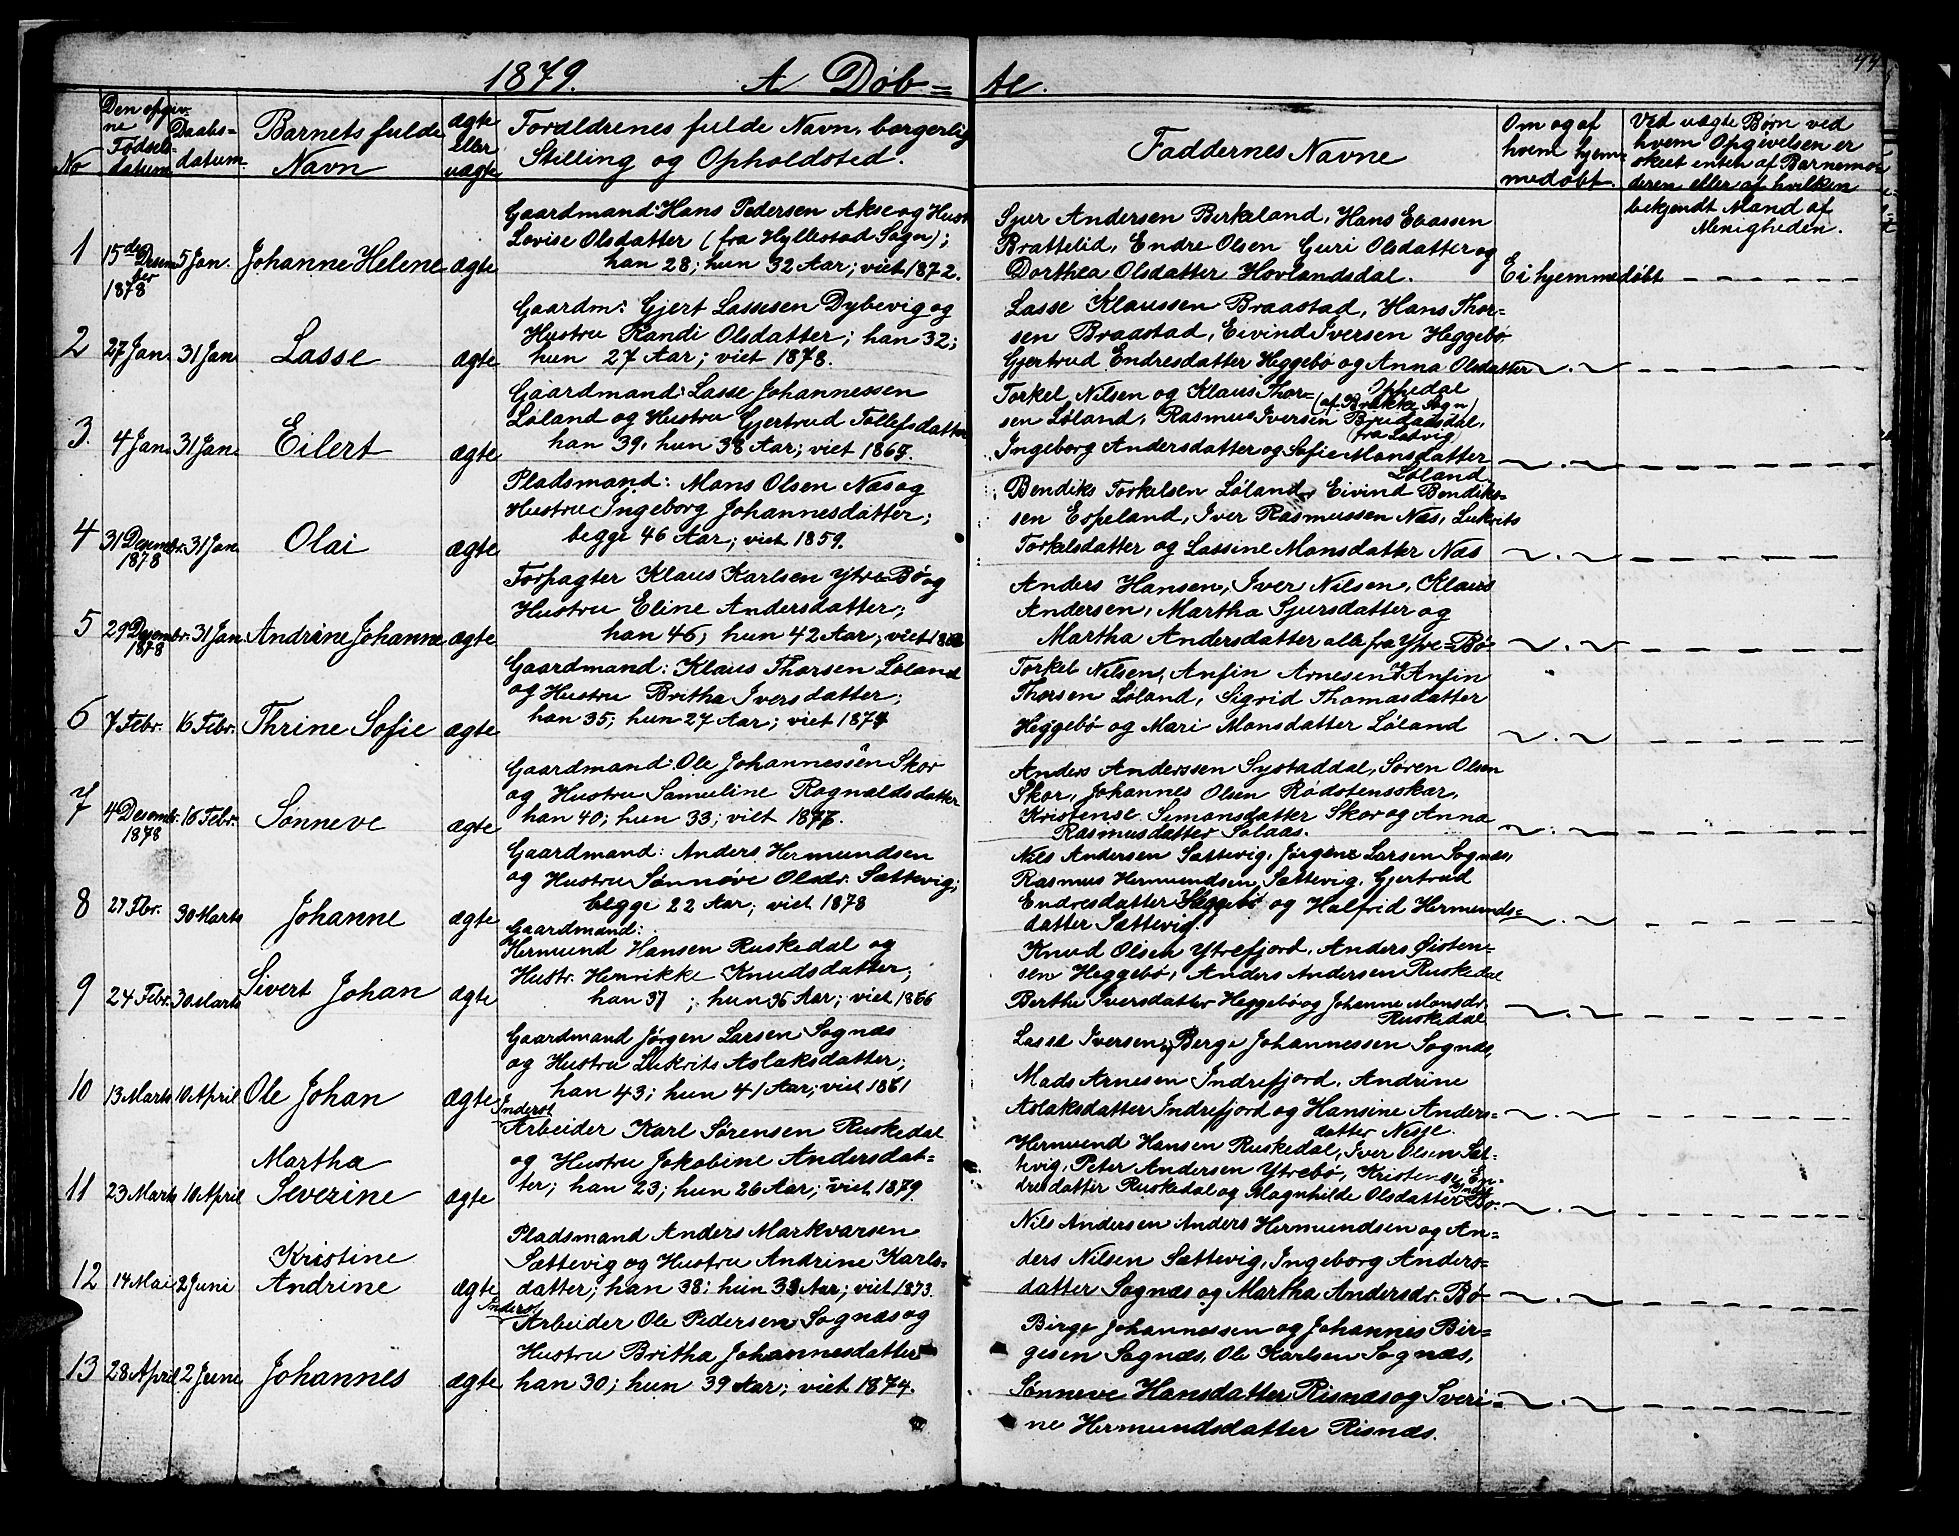 1879. A Døb= te.
44
No
Den opgiv-
ne
Fødsels-
datum
Daabs=
datum
Barnets fulde
Navn
ægte
Eller
uægte
Forældrenes fulde Navn, borgerlig
Stilling og Opholdsted.
Faddernes Navne
Om og af
hvem hjem-
medøbt.
Ved uægte Børn ved
hvem Opgivelsen er
skeet enten af Barnemo-
deren eller af hvilken
bekjendt Mand af
Menigheden.
1 15de Desem-
ber
1878 5 Jan. Johanne Helene ægte
Gaardmand: Hans Pedersen Akse og Hust.
Lovise Olsdatter (fra Hyllestad Sogn);
han 28; hun 32 Aar; viet 1872.
Sjur Andersen Birkeland, Hans Evassen
Brattelid, Endre Olsen Guri Olsdatter og
Dorthea Olsdatter Hovlandsdal.
Ei hjemmedøbt
2 27 Jan. 31 Jan Lasse ægte
Gaardm: Gjert Lassesen Dybevig og
Hustru Randi Olsdatter; han 32;
hun 27 Aar; viet 1878.
Lasse Klaussen Braastad, Hans Thor=
sen Braastad, Eivind Iversen Heggebø.
Gjertrud Endresdatter Heggebø og Anna Olsdatter
3. 4 Jan. 31 Jan. Eilert ægte
Gaardmand: Lasse Johannessen
Løland og Hustru Gjertrud Tollefsdatter
han 39, hun 38 Aar; viet 1865.
Torkel Nilsen og Klaus Thor= Ophedal
(af Brekke Sogn)
sen Løland, Rasmus Iversen Brudadsdal,
(fra Ladvig)
Ingeborg Andersdatter og Sofie Monsdatter
Løland
4 31 Desembr. 31 Jan
1878 Olai ægte
Pladsmand: Mons Olsen Næs og
Hustru Ingeborg Johannesdatter;
begge 46 Aar; viet 1859.
Bendiks Torkelsen Løland, Eivind Bendiks=
sen Espeland, Iver Rasmussen Næs, Lukrits
Torkelsdatter og Lassine Monsdatter Næs
5 29 Desembr. 31 Jan
1878 Andrine Johanne ægte
Forpagter Klaus Karlsen Ytre=Bø og
Hustru Eline Andersdatter;
han 46; hun 42 Aar; viet
Anders Hansen, Iver Nilsen, Klaus
Andersen, Martha Sjursdatter og
Martha Andersdatter alle fra Ytre=Bø
6 7 Febr. 16 Febr. Thrine Sofie ægte
Gaardmand: Klaus Thorsen Løland
og Hustru Britha Iversdatter;
han 35; hun 27 Aar; viet 1874
Torkel Nilsen, Anfin Arnesen og Anfin
Thorsen Løland, Sigrid Thomasdatter
Heggebø og Mari Monsdatter Løland
7 4 Desembr. 16 Febr.
1878 Sønneve ægte
Gaardmand: Ole Johannessen Skor
og Hustru Samuline Rognaldsdatter
han 40; hun 33; viet 1877.
Anders Anderssen Systaddal, Søren Olsen
Skor, Johannes Olsen Rødstensskar,
Kristense Simonsdatter Skor og Anna
Rasmusdatter Solaas.
8 27 Fbr. 30 Marts Johanne ægte
Gaardmand: Anders Hermundsen
og Hustru Sønnøve Olsdr. Sættevig;
begge 22 Aar; viet 1878
Nils Andersen Sættevig, Jørgen Larsen Sognæs,
Rasmus Hermundsen Sættevig, Gjertrud
Endresdatter Heggebø og Halfrid Hermunds=
datter Sættevig.
9 24 Febr. 30 Marts Sivert Johan ægte
Gaardmand:
Hermund Hansen Ruskedal og
Hustr. Henrikke Knudsdatter;
han 37 ; hun 36 Aar; viet 1866
Knud Olsen Ytrefjord, Anders Østen=
sen Heggebø, Anders Andersen Ruskedal
Berthe Iversdatter Heggebø og Johanne Monsdr.
Ruskedal
10 13 Marts 10 April Ole Johan ægte
Gaardmand Jørgen Larsen Sognæs
og Hustru Lukrits Aslaksdatter;
han 43; hun 41 Aar; viet 1861
Lasse Iversen, Berge Johannessen Sognæs,
Mads Arnesen Indrefjord, Andrine
Aslaksdatter Indrefjord og Hansine Anders=
datter Nesje.
11 23 Marts 10 April Martha
Severine ægte
Inderst
Arbeider Karl Sørensen Ruskedal
og Hustru Jakobine Andersdat=
ter; han 23; hun 26 Aar; viet 1879.
Hermund Hansen Ruskedal, Iver Olsen Sæt-
tevig, Peter Andersen Ytrebø, Kristense En-
dresdatter Ruskedal og Magnhilde Olsdatter Bø.
12 14 Mai 2 Juni Kristine
Andrine ægte
Pladsmand Anders Markvarsen
Sættevig og Hustru Andrine Karls=
datter; han 38; hun 33 Aar; viet 1873.
Nils Andersen Anders Hermundsen og An=
ders Nilsen Sættevig, Ingeborg Anders=
datter Sognæs og Martha Andersdr. Bø
13 28 April 2 June Johannes ægte
Inderst
Arbeider Ole Pedersen Sognæs og
Hustru Britha Johannesdatter
han 30; hun 39 Aar; viet 1874.
Birge Johannessen og Johannes Bir=
gesen Sognæs, Ole Karlsen Sognæs,
Sønneve Hansdatter Risnæs og Sveri=
ne Hermundsdatter Risnæs.